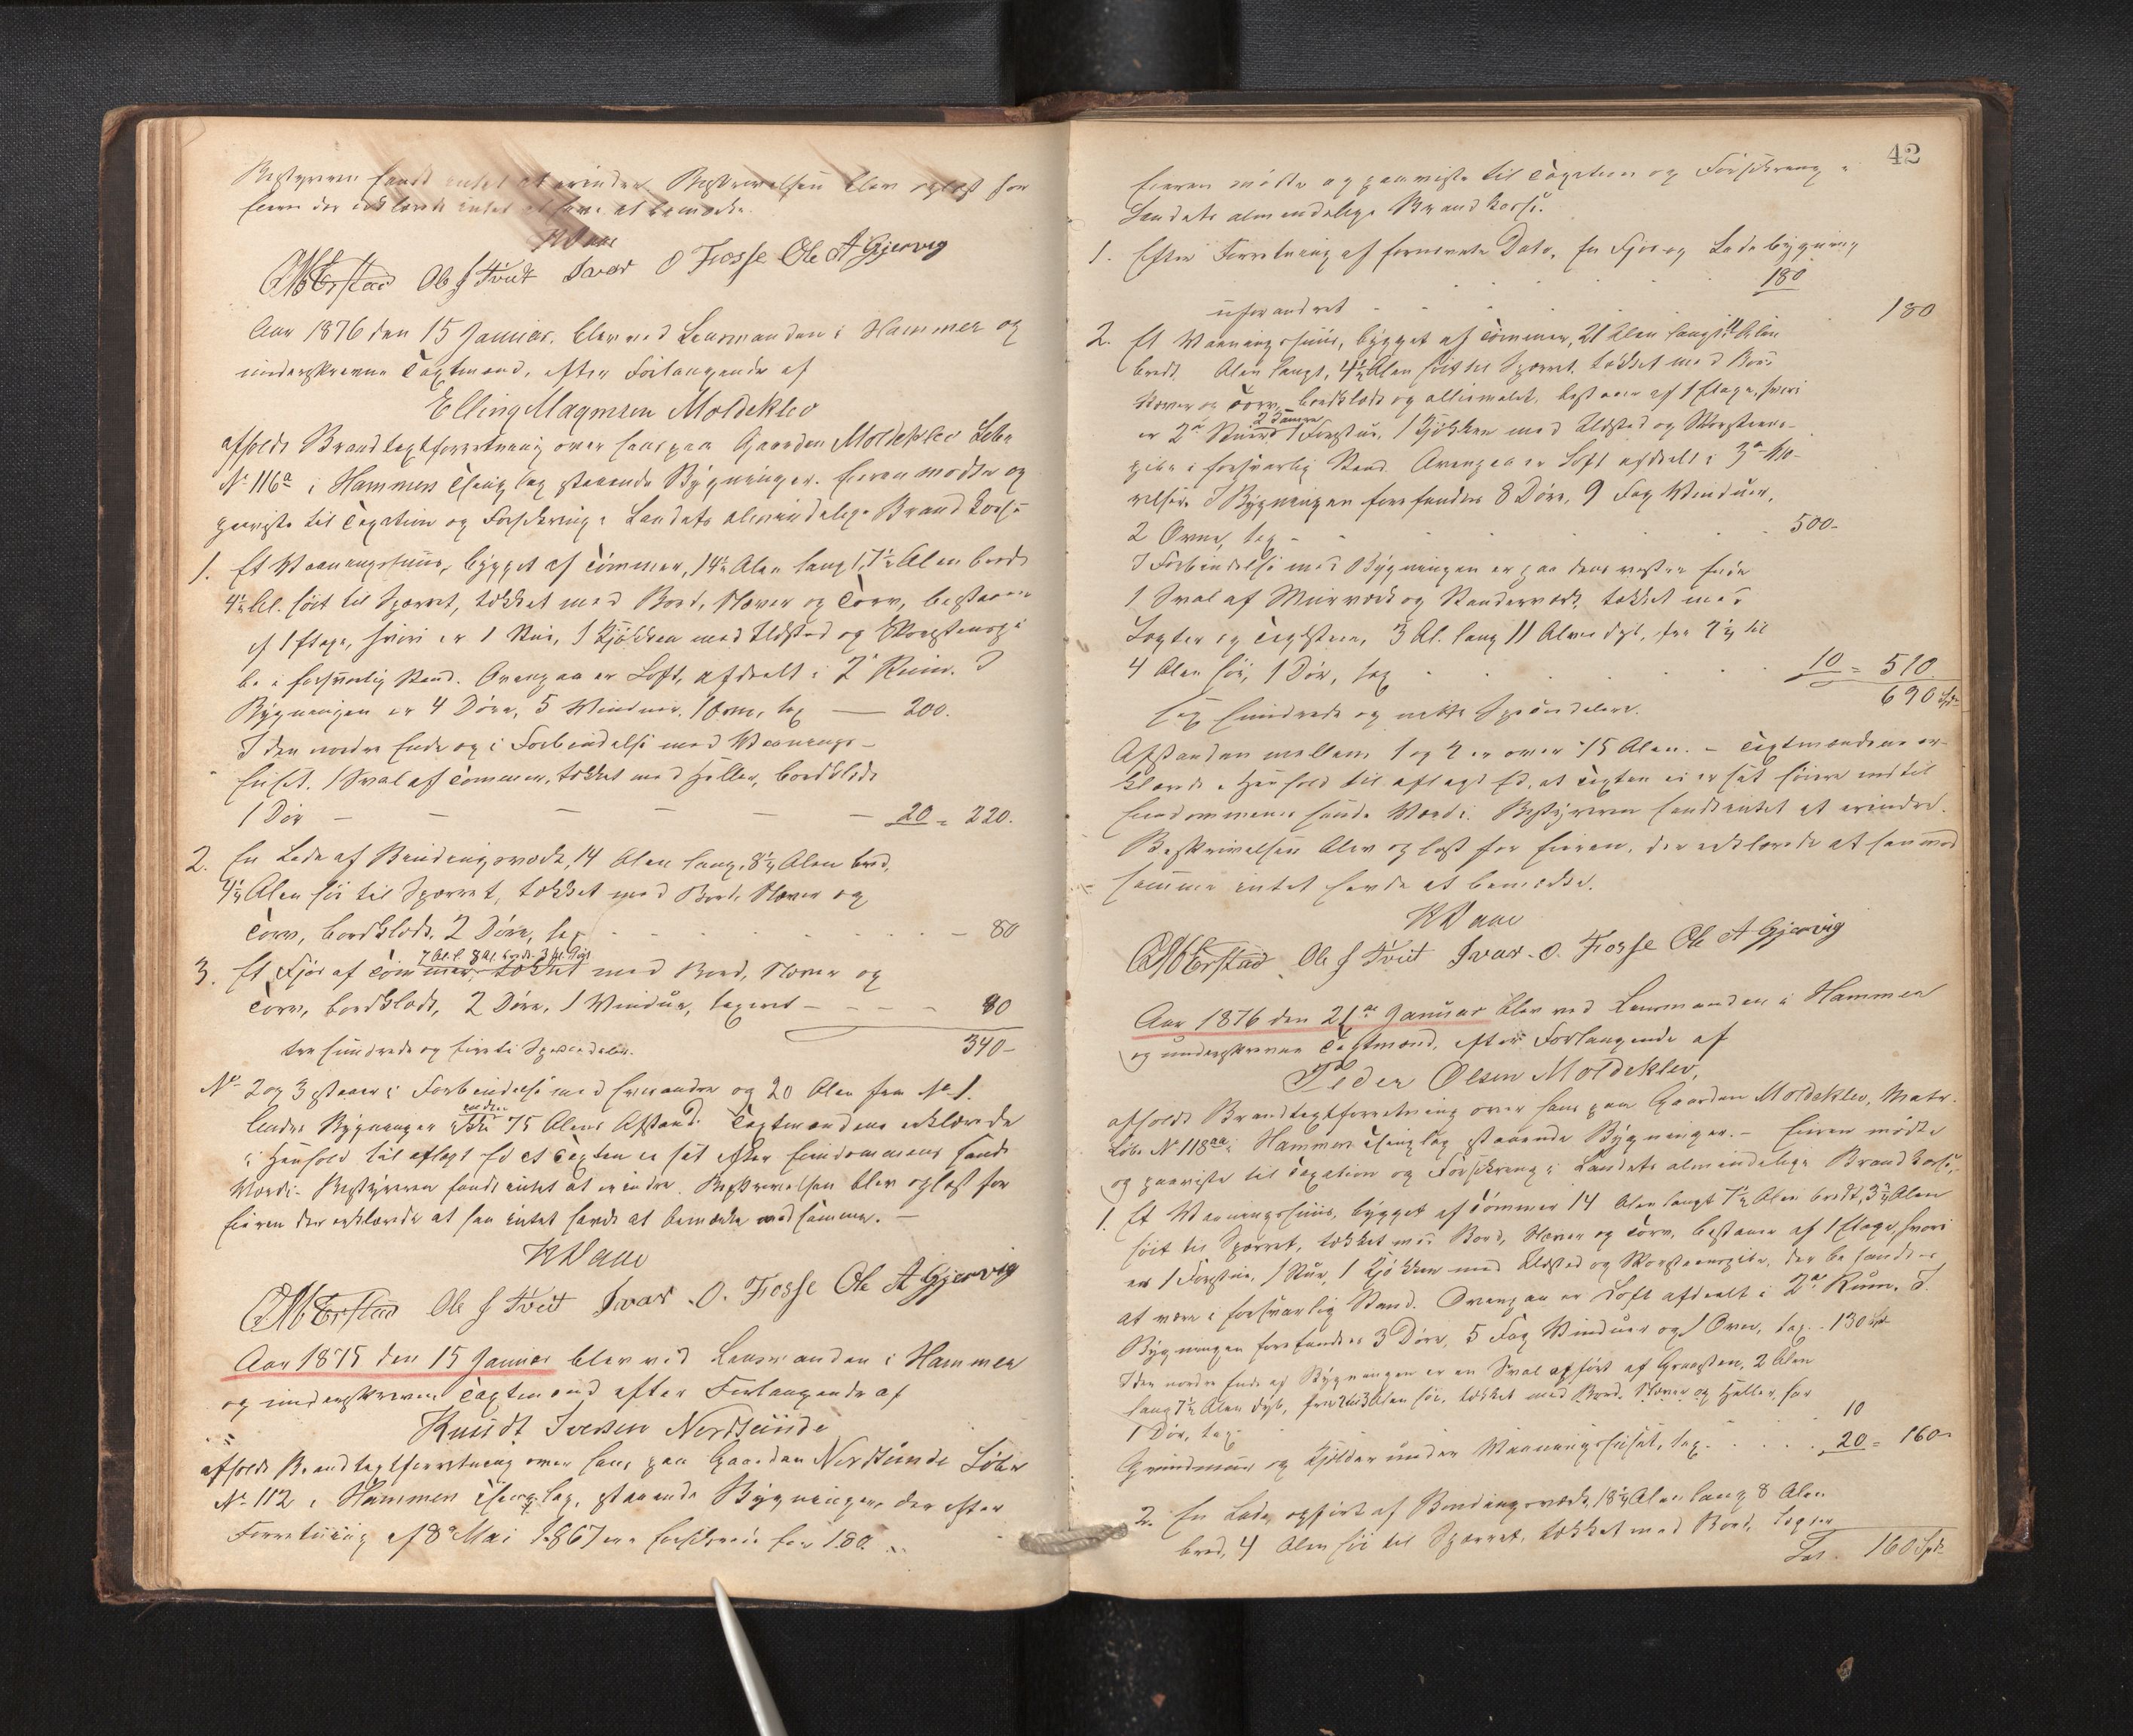 Bestyreren fandt intet at erindre. Beskrivelsen blev oplæst for
Eieren der erklærede intet at have at bemærke.
KDaae
Ole J Tveit Ivar O Fosse Ole A Gjervig
Aar 1876 den 15 Januar. blev ved Lensmanden i Hammer og
underskrevne Taxtmænd, efter Forlangende af
Elling Magnesen Moldeklev
afholdt Brandtaxtforretning over hans paa Gaarden Moldeklev Løbe
No 116a i Hammers Thinglag staaende Bygninger. Eieren mødte og
paaviste til Taxation og Forsikring i Landets almindelige Brandkasse
1. Et Vaaningshuus, bygget af Tømmer, 14½ Alen langt, 7½ Alen bredt
4½ Al. høit til Sparret, tækket med Bord, Næver og Torv, bestaaer
af 1 Etage, hvori er 1 Stue, 1 Kjøkken med Ildsted og Skorstenspi
be i forsvarlig Stand. Ovenpaa er Loft, afdeelt i 2de Rum. I
Bygningen er 4 Døre, 5 Vinduer, 1 Ovn, tax — 200.
I den nordre Ende og i Forbindelse med Vaanings-
huset. 1 Sval af Tømmer, tækket med Heller, bordklædt
1 Dør — — — — — 20 = 220.
2. En Lade af Bindingsværk, 14 Alen lang, 8½ Alen bred,
4½ Alen høi til Sparret, tækket med Bord, Næver og
Torv, bordklædt, 2 Døre, tax - - - - 80
7 Al. l. 8 Al. bredt 3 Al. høit
3. Et Fjøs af Tømmer, tækket med Bord, Næver og
Torv, bordklædt, 2 Døre, 1 Vindue, taxeret - - - 80
tre hundrede og firti Speciedaler. 340-
No 2 og 3 staaer i Forbindelse med hverandre og 20 Alen fra No 1.
Andre Bygninger ikke 75 Alens Afstand. Taxtmændene erklærede
i Henhold til aflagt Ed at Taxten er sat efter Eiendommens sande
Værdi. Bestyreren fandt intet at erindre. Beskrivelsen blev oplæst for
Eieren der erklærede at han intet havde at bemærke ved samme. —
KDaae
Ole J Tveit Ivar O. Fosse Ole A Gjervig
Aar 1875 den 15 Januar blev ved Lensmanden i Hammer
og underskrevne Taxtmænd efter Forlangende af
Knudt Iversen Nordsunde
afholdt Brandtaxtforretning over hans paa Gaarden Nordsunde Løbe
No 112 i Hammers Thinglag, staaende Bygninger, der efter
Forretning af 8de Mai 1867 ere forsikrede for 180
42
Eieren mødte og paaviste til Taxation og Forsikring i
Landets almindelige Brandkasse.
1. Efter Forretning af fornævnte Dato, En Fjøs og Ladebygning
180
uforandret - - - - 180
2. Et Vaaningshuus, bygget af Tømmer, 21 Alen langt 11 Alen
bredt Alen langt, 4½ Alen høit til Sparret, tækket med Bord
Næver og Torv, bordklædt og olliemalet, bestaaer af 1 Etage, hvori
er 2de Stuer 1 Forstue, 1 Kjøkken med Ildsted og Skorsteens-
pibe i forsvarlig Stand. Ovenpaa er Loft afdeelt i 3de Væ-
relser. I Bygningen forefindes 8 Døre, 9 Fag Vinduer,
2 Ovne, tax - - - - 500-
I Forbindelse med Bygningen er paa dens vestre Ende
1 Sval af Muurværk og Standerværk, tækket med
Lægter og Taglsteen, 3 Al. lang 11 Alen dyb, fra 2½ til
4 Alen høi, 1 Dør, tax - - 10 = 510
690 Spd
sex hundrede og nitti Speciedaler.
Afstanden mellem 1 og 2 er over 75 Alen. — Taxtmændene er-
klærede i Henhold til aflagt Ed, at Taxten ei er sat høiere end til
Eiendommens sande Værdi. Bestyreren fandt intet at erindre.
Beskrivelsen blev oplæst for Eieren, der erklærede at han ved
samme intet havde at bemærke.
KDaae
Ole J Tveit Ivar. O. Fosse Ole A Gjervig
Aar 1876 den 21de Januar blev ved Lensmanden i Hammer
og underskrevne Taxtmænd, efter Forlangende af
Peder Olsen Moldeklev,
afholdt Brandtaxtforretning over hans paa Gaarden Moldeklev, Matr.
Løbe No 118aa i Hammers Thinglag staaende Bygninger. — Eieren mødte
og paaviste til Taxation og Forsikring i Landets almindelige Brandkasse,
1. Et Vaaningshuus, bygget af Tømmer 14 Alen langt 7½ Alen bredt, 3¾ Alen
høit til Sparret, tækket med Bord, Næver og Torv, bestaaer af 1 Etage, hvori
er 1 Forstue, 1 Stue, 1 Kjøkken med Ildsted og Skorsteenspibe, der befandtes
at være i forsvarlig Stand. Ovenpaa er Loft afdeelt i 2de Rum. I
Bygningen forefindes 3 Døre, 5 Fag Vinduer og 1 Ovn, tax. 130 Spd
I den nordre Ende af Bygningen er en Sval opført af Graasten, 2 Alen
lang 7½ Alen dyb, fra 2 til 3 Alen høi, tækket med Bord, Næver og Heller, har
1 Dør, tax - 10
Grundmuur og Kjelder under Vaaningshuset, tax. - - - 20 = 160-
2. En Lade, opført af Bindingsværk, 18½ Alen lang 8 Alen
bred, 4 Alen høi til Sparret, tækket med Bord, Lægter
Lat. 160 Spd